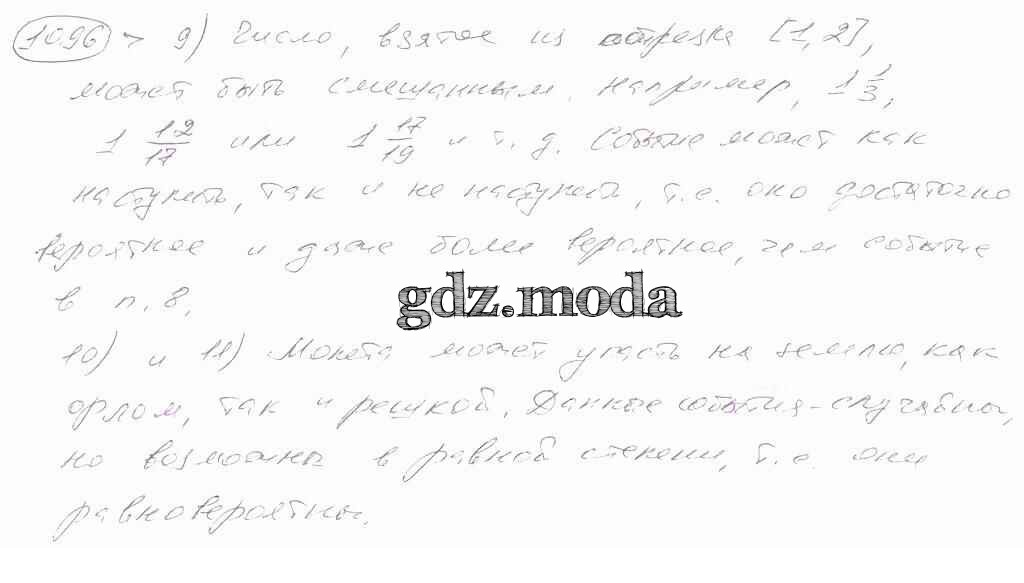 1096 > 9) Число, взятое из отрезка [1,2],
может быть смешанным. Например, 1 1/3,
1 12/17 или 1 17/19 и т. д. Событие может как
наступить, так и не наступить, т.е. оно достаточно
вероятное и даже более вероятное, чем событие
в п. 8.
gdz.moda
10) и 11) Монета может упасть на землю, как
орлом, так и решкой. Данные события - случайны,
но возможны в равной степени, т.е. они
равновероятны.